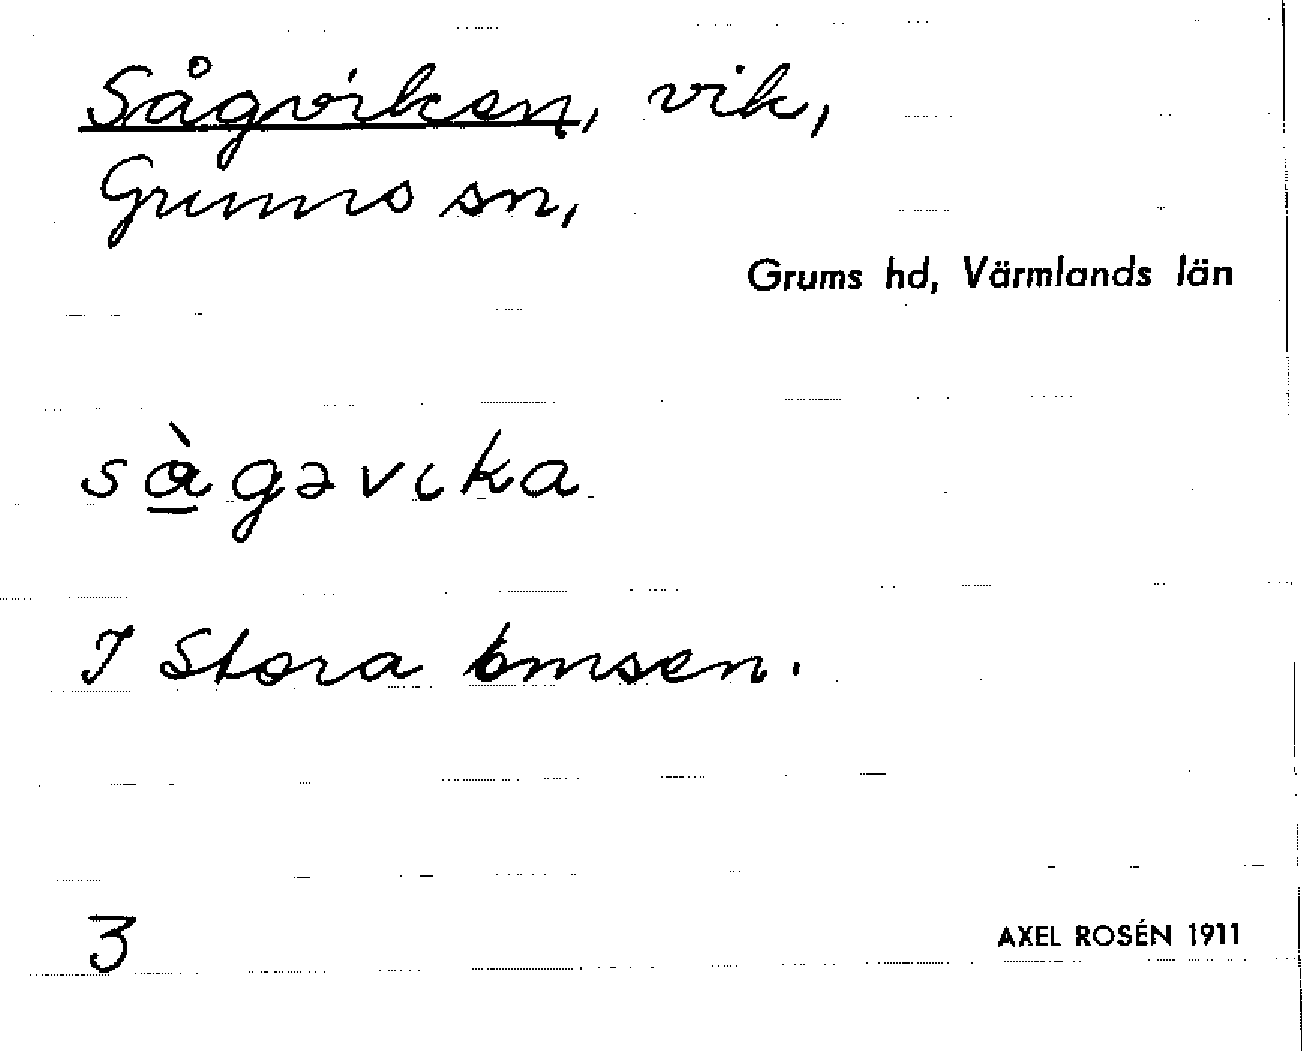 Sågviken, vik,
Grums sn,
Grums hd, Värmlands län
sàgəvıka
I Stora Emsen.
3
AXEL ROSÉN 1911